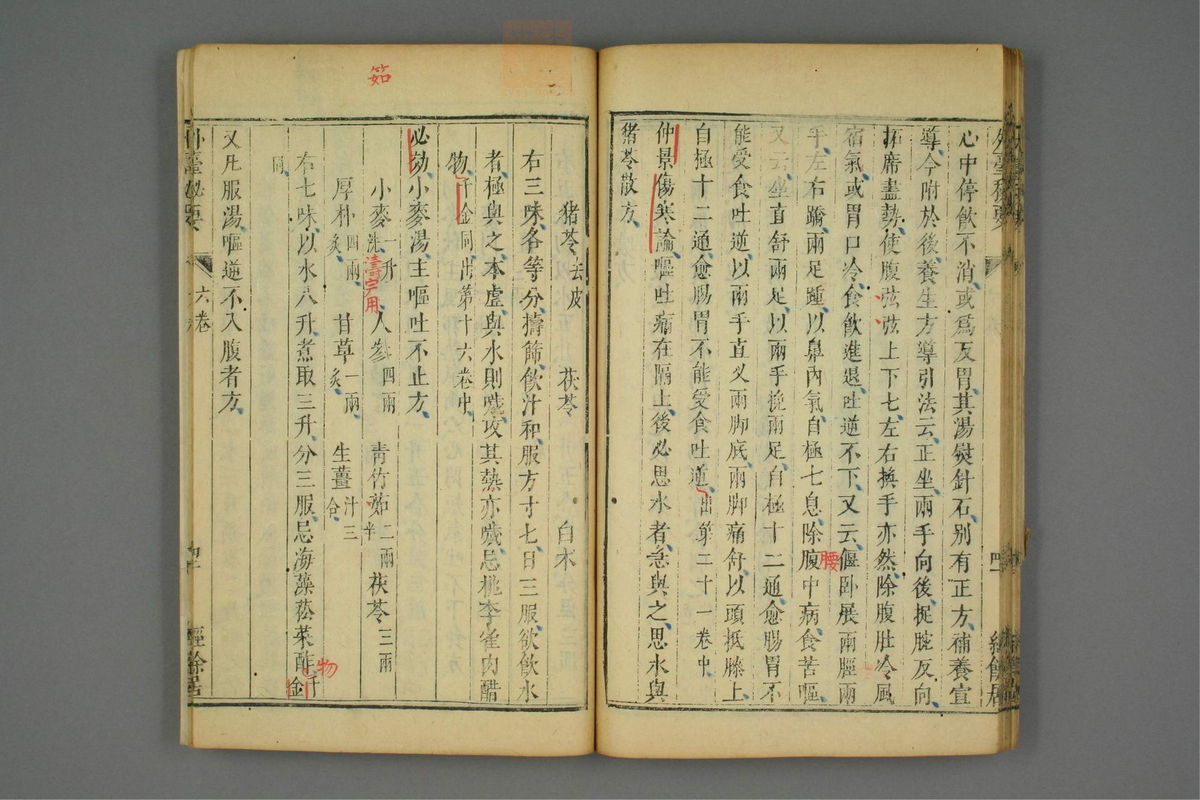 心中停飲不消或爲反胃其湯熨針石别有正方補養宣
導今附於後養生方導引法云正坐兩手向後捉腕反向
拓席盡勢使腹弦弦上下七左右換手亦然除腹肚冷風
宿氣或胃口冷食飲進退吐逆不下又云偃卧展兩脛兩
手左右蹻兩足踵以鼻內氣自極七息除腹中病食苦嘔
腰
又云坐直舒兩足以兩手挽兩足自極十二通愈腸胃不
能受食吐逆以兩手直叉兩脚底兩脚痛舒以頭抵膝上
自極十二通愈腸胃不能受食吐逆出第二十一卷中
仲景傷寒論嘔吐病在膈上後必思水者急與之思水與
猪苓散方
猪苓去皮 茯苓 白术
右三味各等分擣篩飲汁和服方寸匕日三服欲飲水
者極與之本虛與水則噦攻其熱亦噦忌桃李雀肉醋
物千金同出第十六卷中
必効小麥湯主嘔吐不止方
小麥一升洗 人參四兩 青竹茹二兩半 茯苓三兩
茹
厚朴四兩炙 甘草一兩炙 生薑汁三合
濤字用
右七味以水八升煮取三升分三服忌海藻菘菜酢千金
物
同
又凡服湯嘔逆不入腹者方
外臺秘要 六卷 四十 經餘居